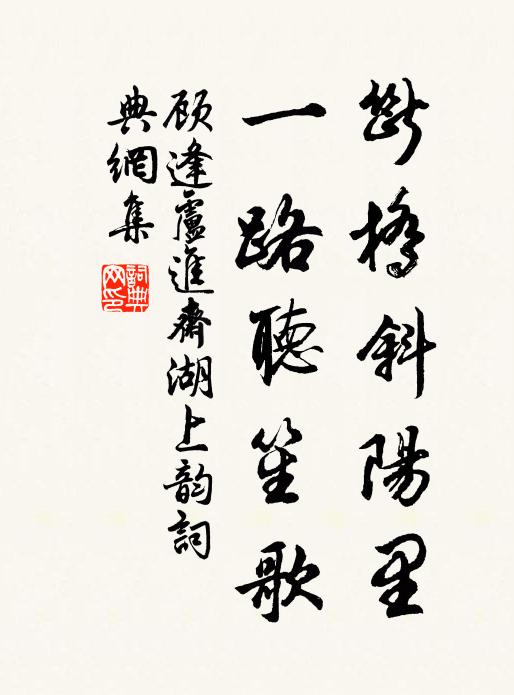 斷橋斜陽里
一路聽笙歌
顾逢盧進齋湖上韵詞
典網集
詞典网印